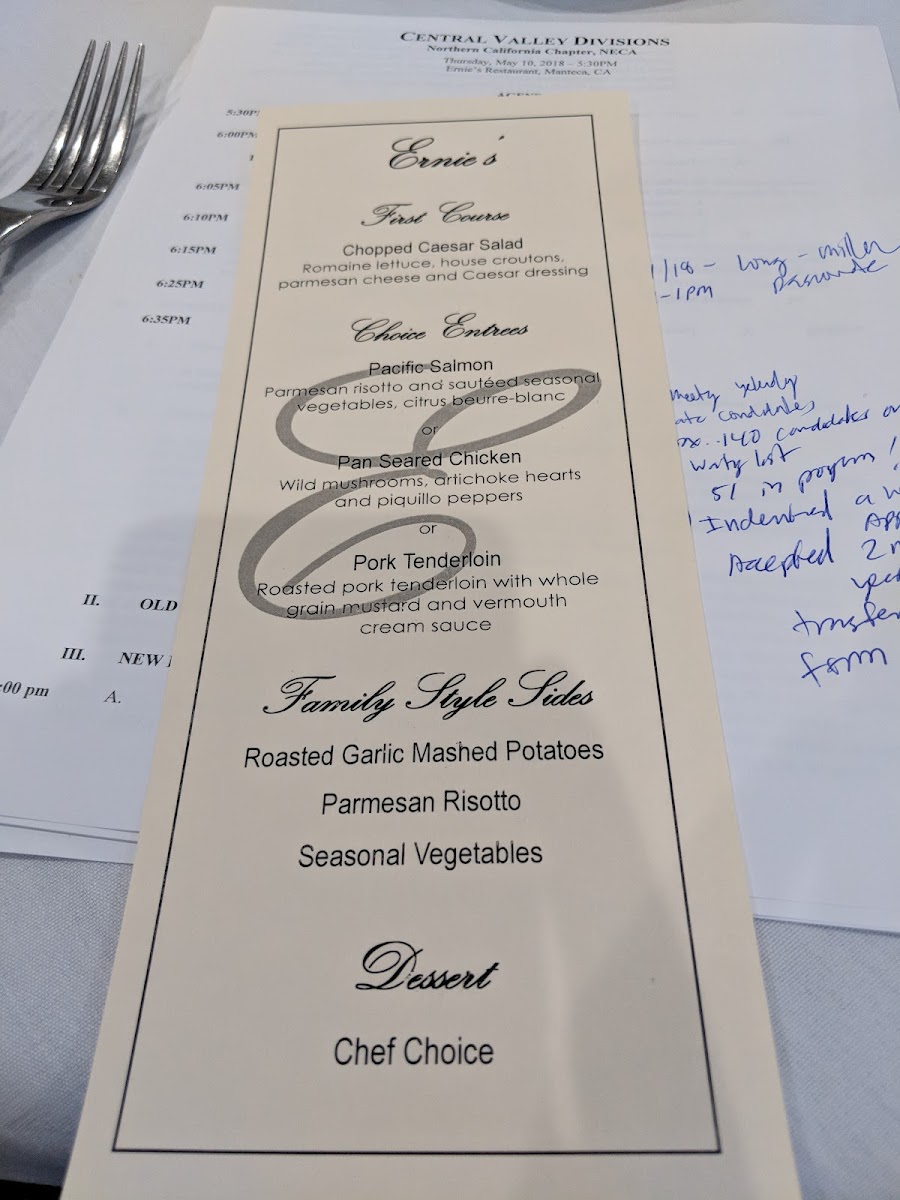 CENTRAL VALLEY DIVISIONS
Northern California Chapter, NECA
Thursday, May 10, 2018 – 5:30PM
Ernie's Restaurant, Manteca, CA
5:30P
6:00PM
6:05PM
6:10PM
6:15PM
6:25PM
6:35PM
II. OLD
III. NEW
:00 pm A.
Ernie's
First Course
Chopped Caesar Salad
Romaine lettuce, house croutons,
parmesan cheese and Caesar dressing
Choice Entrees
Pacific Salmon
Parmesan risotto and sautéed seasonal
vegetables, citrus beurre-blanc
or
Pan Seared Chicken
Wild mushrooms, artichoke hearts
and piquillo peppers
or
Pork Tenderloin
Roasted pork tenderloin with whole
grain mustard and vermouth
cream sauce
Family Style Sides
Roasted Garlic Mashed Potatoes
Parmesan Risotto
Seasonal Vegetables
Dessert
Chef Choice
1/18 - Long - miller
-1pm
candidates
140 candidates
list
51 in
Indentured a
Accepted 2
transfer
form